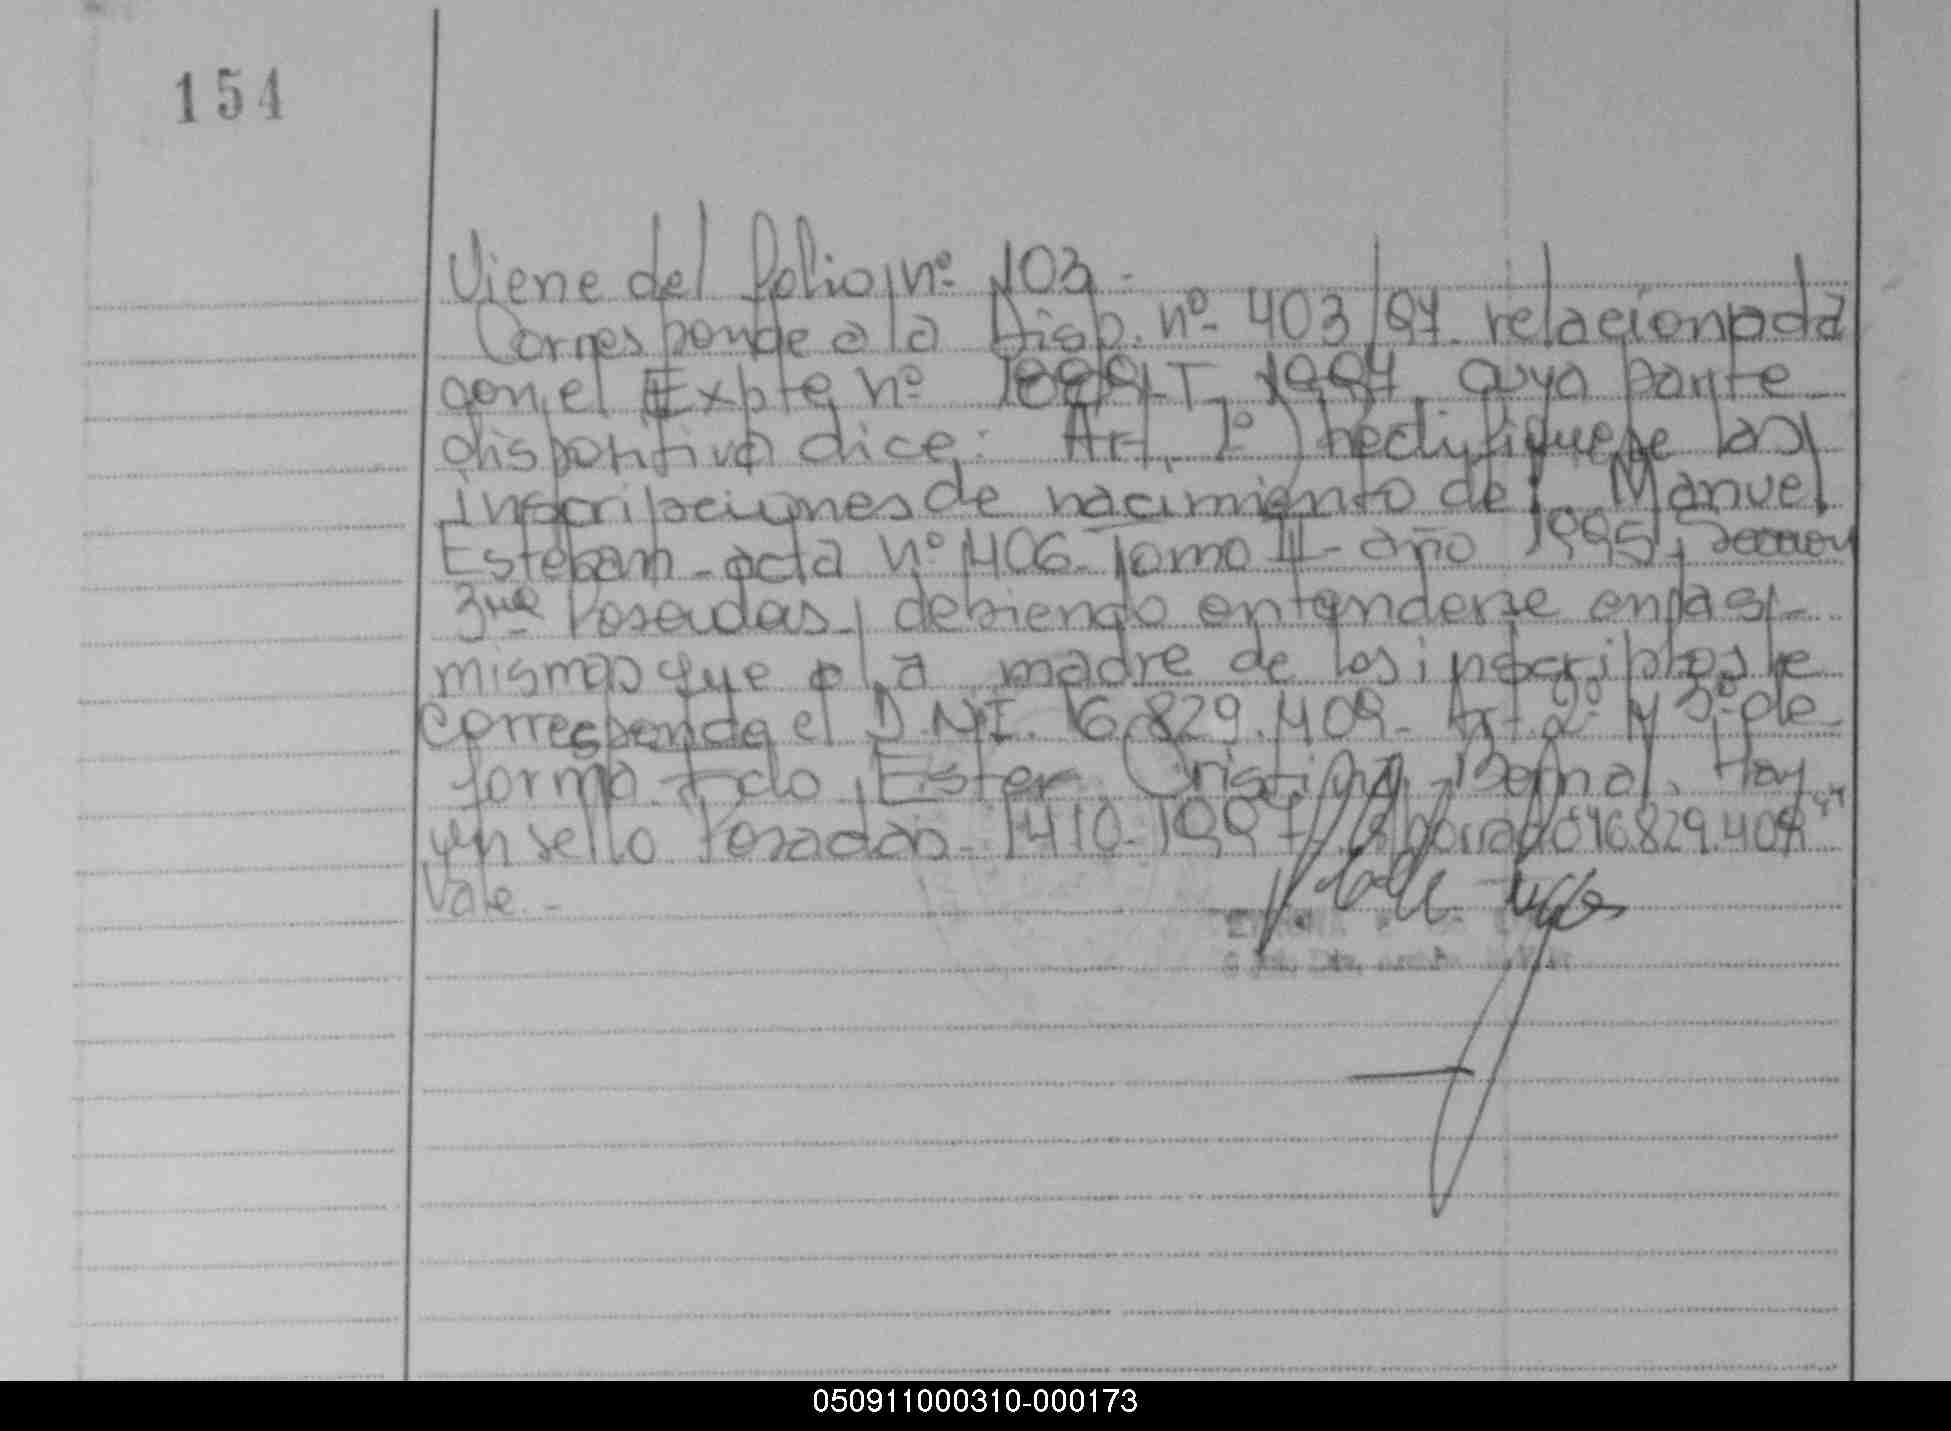 154
Viene del folio nº 103.-
Corresponde a la Disp. nº 403/97 relacionada
con el Expte nº T 1997 cuya parte
dispositiva dice: Art. 1º) Rectifiquese las
inscripciones de nacimiento de Manuel
Esteban - acta nº 406 - Tomo II - año 1995, Seccion
3ra Posadas, debiendo entenderse en las
mismas que a la madre de los inscriptos le
corresponde el D.N.I. 16.829.409 - Art. 2º y 3º de
forma. Fdo Ester Cristina Bernal. Hay
un sello Posadas - 14-10-1997 16.829.409"
Vale.-
050911000310-000173